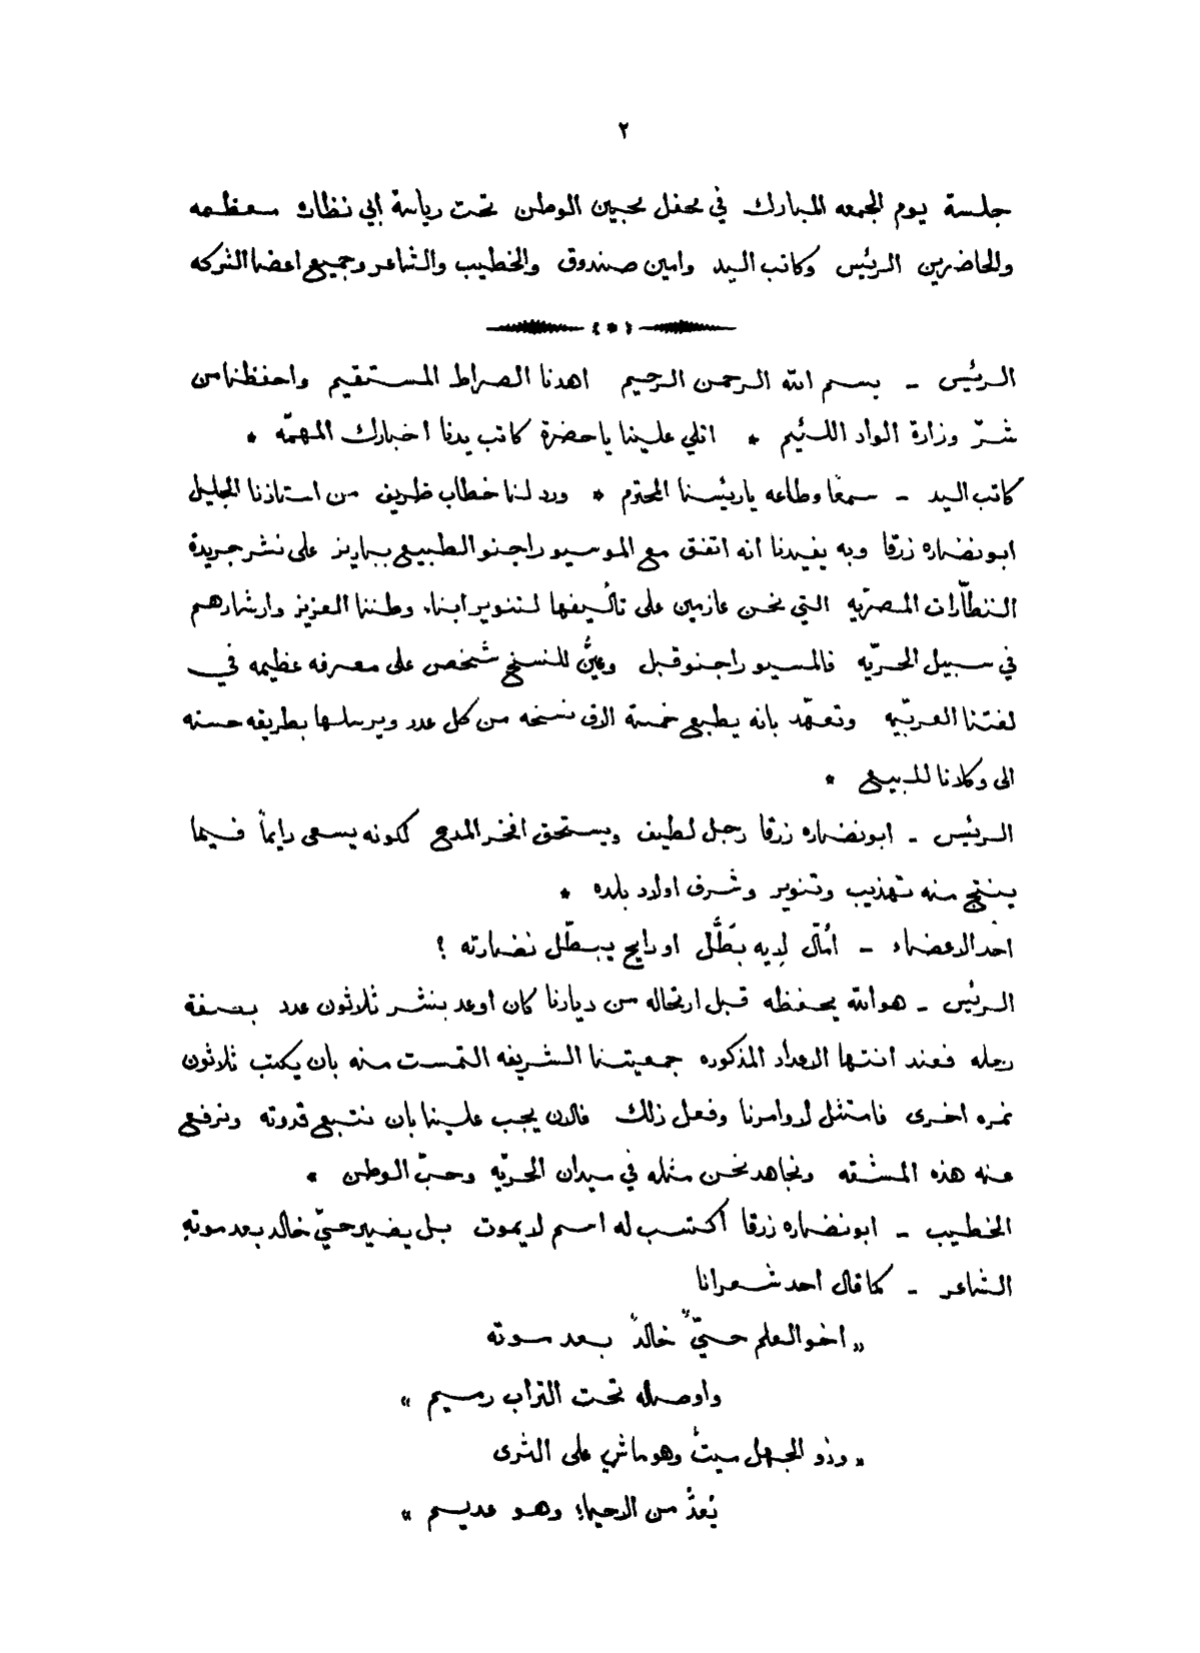 ٢
جلسة يوم الجمعه المبارك في محفل محبين الوطن تحت رياسة ابي نظارة معظمه
والحاضرين الرئيس وكاتب اليد وامين صندوق والخطيب والشاعر وجميع اعضا الشركه
الرئيس - بسم الله الرحمن الرحيم اهدنا الصراط المستقيم واحفظنا من
شرّ وزارة الواد اللئيم * اتلي علينا ياحضرة كاتب يدنا اخبارك المهمّه *
كاتب اليد - سمعًا وطاعه ياريئسنا المحترم * ورد لنا خطاب ظريف من استاذنا الجليل
ابونضاره زرقا وبه يفيدنا انه اتفق مع الموسيو راجنو الطبيع بباريز على نشر جريدة
النظّارات المصريّه التي نحن عازمين على تأليفها لتنوير ابناء وطننا العزيز وارشادهم
في سبيل الحريّه فالمسيو راجنو قبل وعيّن للنسخ شخص على معرفه عظيمه في
لغتنا العربيّه وتعهّد بانه يطبع خمسة الاف نسخه من كل عدد ويرسلها بطريقه حسنه
الى وكلانا للبيع *
الرئيس - ابونضاره زرقا رجل لطيف ويستحق افخر المدح لكونه يسعى دايمًا فيما
ينتج منه تهذيب وتنوير وشرف اولاد بلده *
احد الاعضاء - امّال ليه بَطَّل او رايح يبطّل نضارته ؟
الرئيس - هو الله يحفظه قبل ارتحاله من ديارنا كان اوعد بنشر ثلاثون عدد بصفة
رحله فعند انتها الاعداد المذكوره جمعيتنا الشريفه التمست منه بان يكتب ثلاثون
نمره اخرى فامتثل لاوامرنا وفعل ذلك فالان يجب علينا بان نتبع قدوته ونرفع
عنه هذه المشقه ونجاهد نحن مثله في ميدان الحريّه وحبّ الوطن *
الخطيب - ابونضاره زرقا اكتسب له اسم لايموت بل يضير حيّ خالد بعد موتهِ
الشاعر - كما قال احد شعرانا
« اخو العلم حيٌّ خالدٌ بعد موته
واوصاله تحت التراب رميم »
« وذو الجهل ميتٌ وهو ماشٍ على الثرى
يُعدُّ من الاحياءِ وهو عديم »